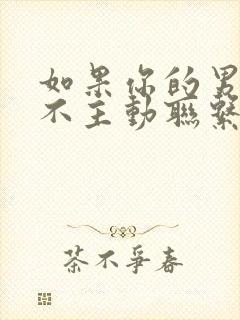 如果你的男
不主動聯繫
茶不爭春